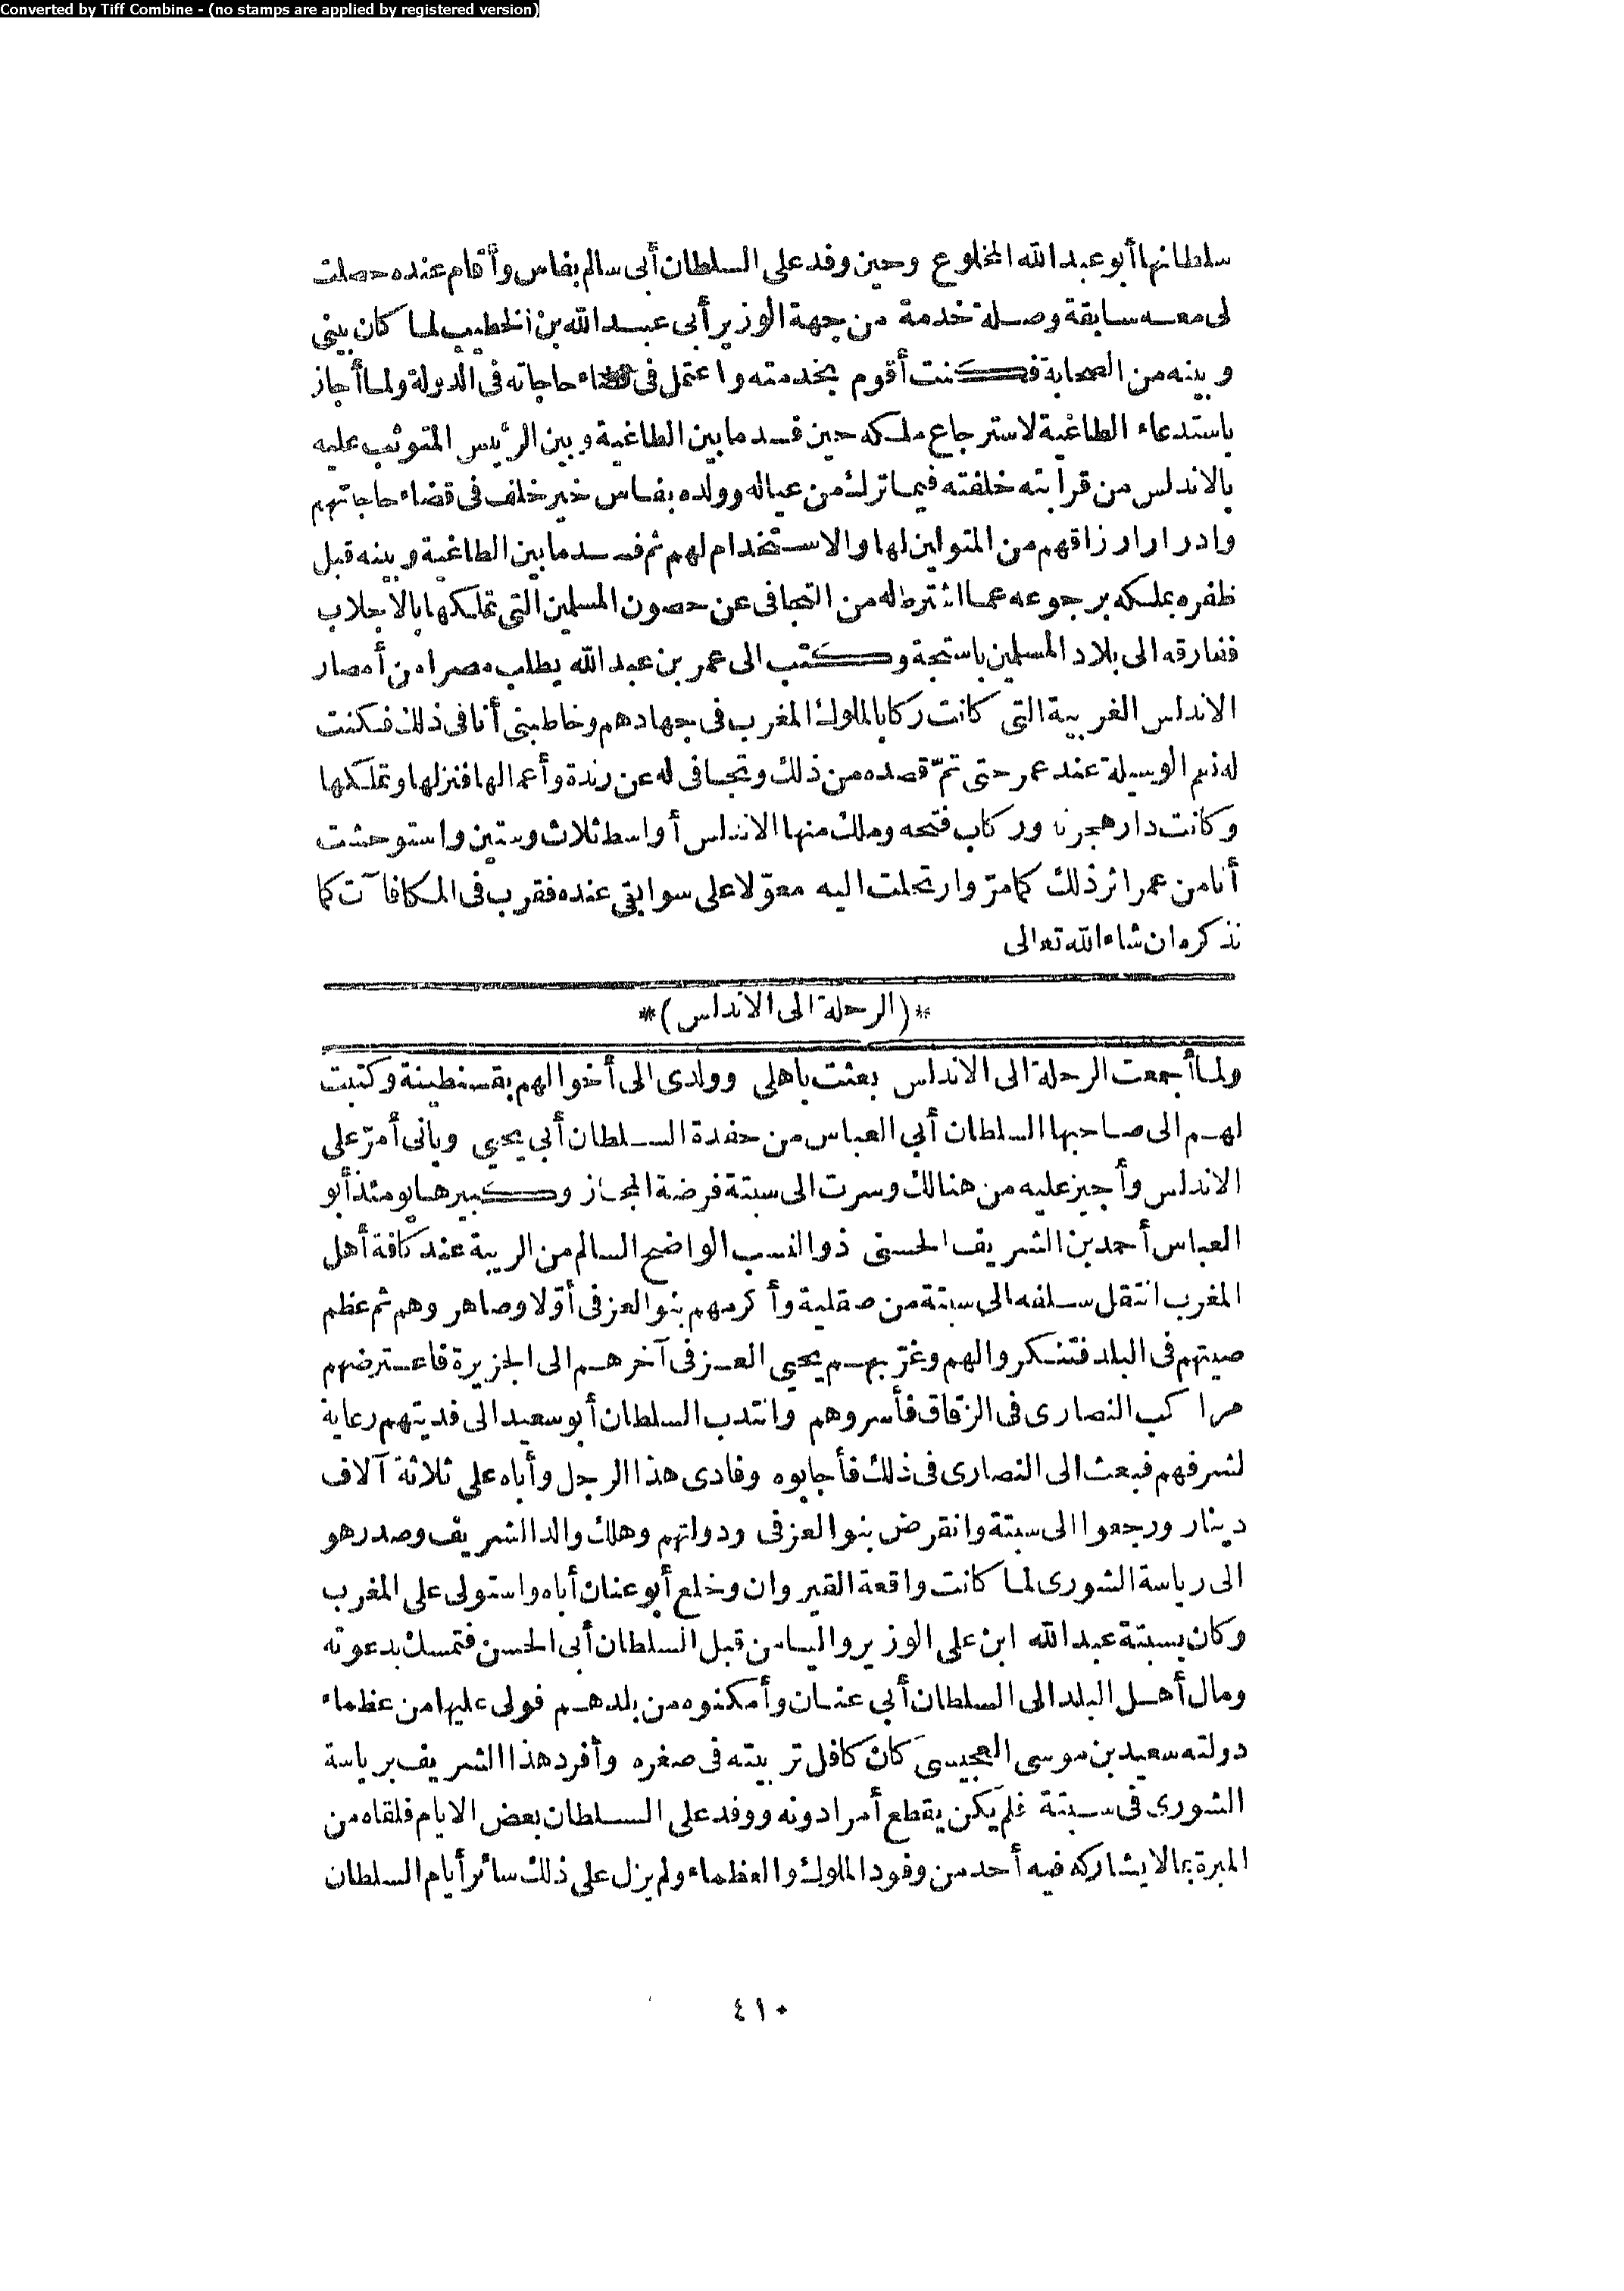 Converted by Tiff Combine - (no stamps are applied by registered version)
سلطانها أبو عبد الله المخلوع وحين وفد على السلطان أبى سالم بفاس وأقام عنده حصلت
لى معه سابقة وصلة خدمة من جهة الوزير أبى عبد الله بن الخطيب لما كان بينى
وبينه من الصحابة فكنت أقوم بخدمته واعتمل فى قضاء حاجاته فى الدولة ولما أجاز
باستدعاء الطاغية لاسترجاع ملكه حين فسد ما بين الطاغية وبين الرئيس المتوثب عليه
بالاندلس من قرابته خلفته فيما ترك من عياله وولده بفاس خير خلف فى قضاء حاجاتهم
وادرار ارزاقهم من المتولين لها والاستخدام لهم ثم فسد ما بين الطاغية وبينه قبل
ظفره بملكه برجوعه عما اشترط له من التجافى عن حصون المسلمين التى تملكها بالاجلاب
ففارقه الى بلاد المسلمين باستجة وكتب الى عمر بن عبد الله يطلب مصرا من أمصار
الاندلس الغربية التى كانت ركابا لملوك المغرب فى جهادهم وخاطبنى أنا فى ذلك فكنت
له نعم الوسيلة عند عمر حتى تمّ قصده من ذلك وتجافى له عن رندة وأعمالها فنزلها وتملكها
وكانت دار هجرته وركاب فتحه وملك منها الاندلس أواسط ثلاث وستين واستوحشت
أنا من عمر اثر ذلك كما مرّ وارتحلت اليه معوّلا على سوابقى عنده فقرب فى المكافآت كما
نذكره ان شاء الله تعالى
*(الرحلة الى الاندلس)*
ولما أجمعت الرحلة الى الاندلس بعثت باهلى وولدى الى أخوالهم بقسنطينة وكتبت
لهم الى صاحبها السلطان أبي العباس من حفدة السلطان أبي يحيي وبانى أمرّ على
الاندلس وأجيز عليه من هنالك وسرت الى سبتة فرضة المجاز وكبيرها يومئذ أبو
العباس أحمد بن الشريف الحسنى ذو النسب الواضح السالم من الريبة عند كافة أهل
المغرب انتقل سلفه الى سبتة من صقلية وأكرمهم بنو العزفى أوّلا وصاهروهم ثم عظم
صيتهم فى البلد فتنكروا لهم وغرّ بهم يحيي العزفى آخرهم الى الجزيرة فاعترضهم
مراكب النصارى فى الزقاق فأسروهم وانتدب السلطان أبو سعيد الى فديتهم رعاية
لشرفهم فبعث الى النصارى فى ذلك فأجابوه وفادى هذا الرجل وأباه على ثلاثة آلاف
دينار ورجعوا الى سبتة وانقرض بنو العزفى ودولتهم وهلك والد الشريف وصدر هو
الى رياسة الشورى لما كانت واقعة القيروان وخلع أبو عنان أباه واستولى على المغرب
وكان بسبتة عبد الله ابن على الوزير واليا من قبل السلطان أبى الحسن فتمسك بدعوته
ومال أهل البلد الى السلطان أبي عنان وأمكنوه من بلدهم فولى عليها من عظماء
دولته سعيد بن موسى العجيسى كان كافل تربيته فى صغره وأفرد هذا الشريف برياسة
الشورى فى سبتة فلم يكن يقطع أمرا دونه ووفد على السلطان بعض الايام فلقاه من
المبرة بما لا يشاركه فيه أحد من وفود الملوك والعظماء ولم يزل على ذلك سائر أيام السلطان
٤١٠